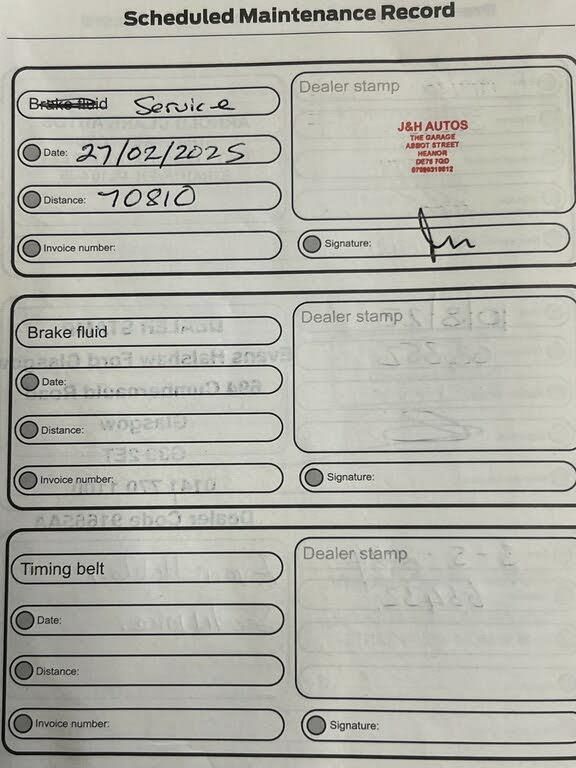 Scheduled Maintenance Record
Brake fluid Service
Dealer stamp
J&H AUTOS
THE GARAGE
ABBOT STREET
HEANOR
DE75 7QD
Date: 27/02/2025
Distance: 70810
Invoice number:
Signature:
Brake fluid
Dealer stamp
Date:
Distance:
Invoice number:
Signature:
Timing belt
Dealer stamp
Date:
Distance:
Invoice number:
Signature: